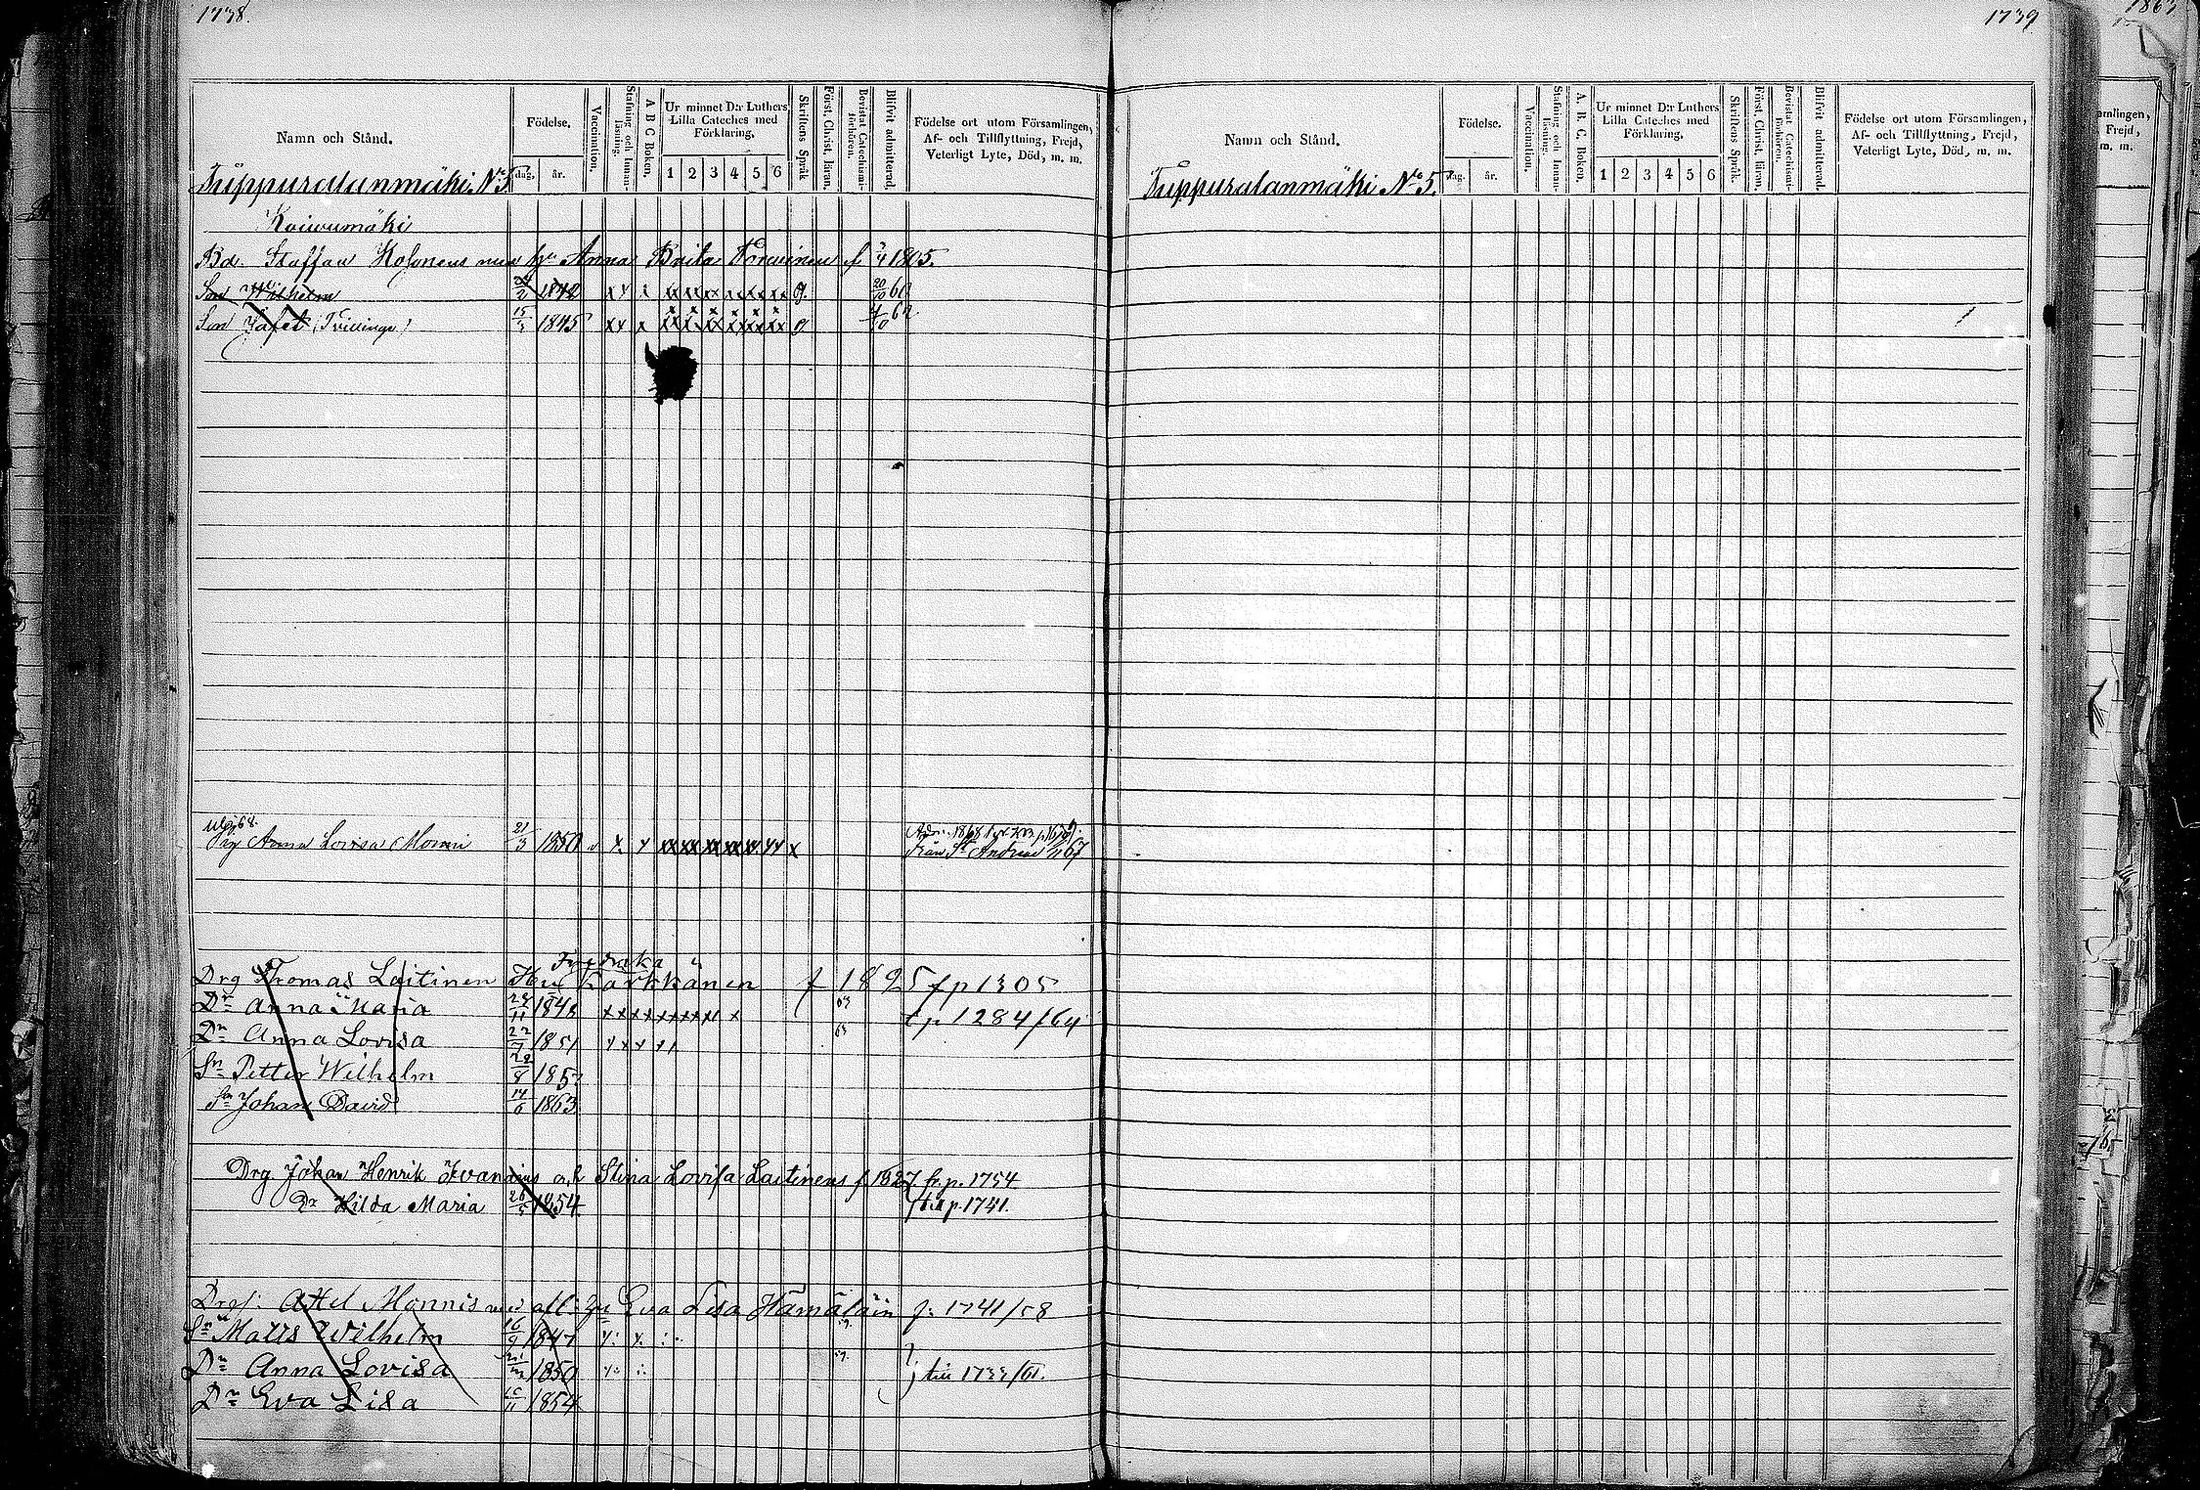 1738.
Namn och Stånd.
Födelse.
dag, år.
Vaccination.
Stafning och Innan-läsning.
A B C Boken.
Ur minnet D:r Luthers Lilla Cateches med Förklaring.
1 2 3 4 5 6
Skriftens Språk
Först. Christ. läran.
Bevistat Catechismi-förhören.
Blifvit admitterad.
Födelse ort utom Församlingen,
Af- och Tillflyttning, Frejd,
Veterligt Lyte, Död, m. m.
Tuppuralanmäki N:o 5.
Koivumäki
Bd. Staffan Kosonens med hu Anna Brita f 1805.
Son Wilhelm 1842 xx x xx xx xx xx xx xx g. 20/10 60
Son Jafet (Tvillinge) 15/3 1845 xx x xx xx xx xx xx xx g
Anna Lovisa 21/3 1850 x x xx xx xx xx xx xx x
Från St Andreae 67
Drg Thomas Laitinen Hu Karkkänen f 1825 fp 1305
Dr Anna Maria 24/11 1848 63 tp 1284/64
Dr Anna Lovisa 22/7 1851 63
Sn Petter Wilhelm 1857
Sn Johan David 14/6 1863
Drg Johan Henrik o. h Stina Lovisa Laitinens f 1827 fr. p. 1754
Dr Hilda Maria 26/5 1854 till p. 1741.
Drgs. Axel Monnis med Hu Eva Lisa Hämäläin f: 1741/58
Sn Matts Wilhelm 16/9 1847
Dr Anna Lovisa 1850 till 1733/61.
Dr Eva Lisa 1854
1739
Namn och Stånd.
Födelse.
dag. år.
Vaccination.
Stafning och Innan-läsning.
A. B. C. Boken.
Ur minnet D:r Luthers Lilla Cateches med Förklaring.
1 2 3 4 5 6
Skriftens Språk.
Först. Christ. läran.
Bevistat Catechismi-förhören.
Blifvit admitterad.
Födelse ort utom Församlingen,
Af- och Tillflyttning, Frejd,
Veterligt Lyte, Död, m. m.
Tuppuralanmäki N:o 5.
1863
amlingen,
Frejd,
m. m.